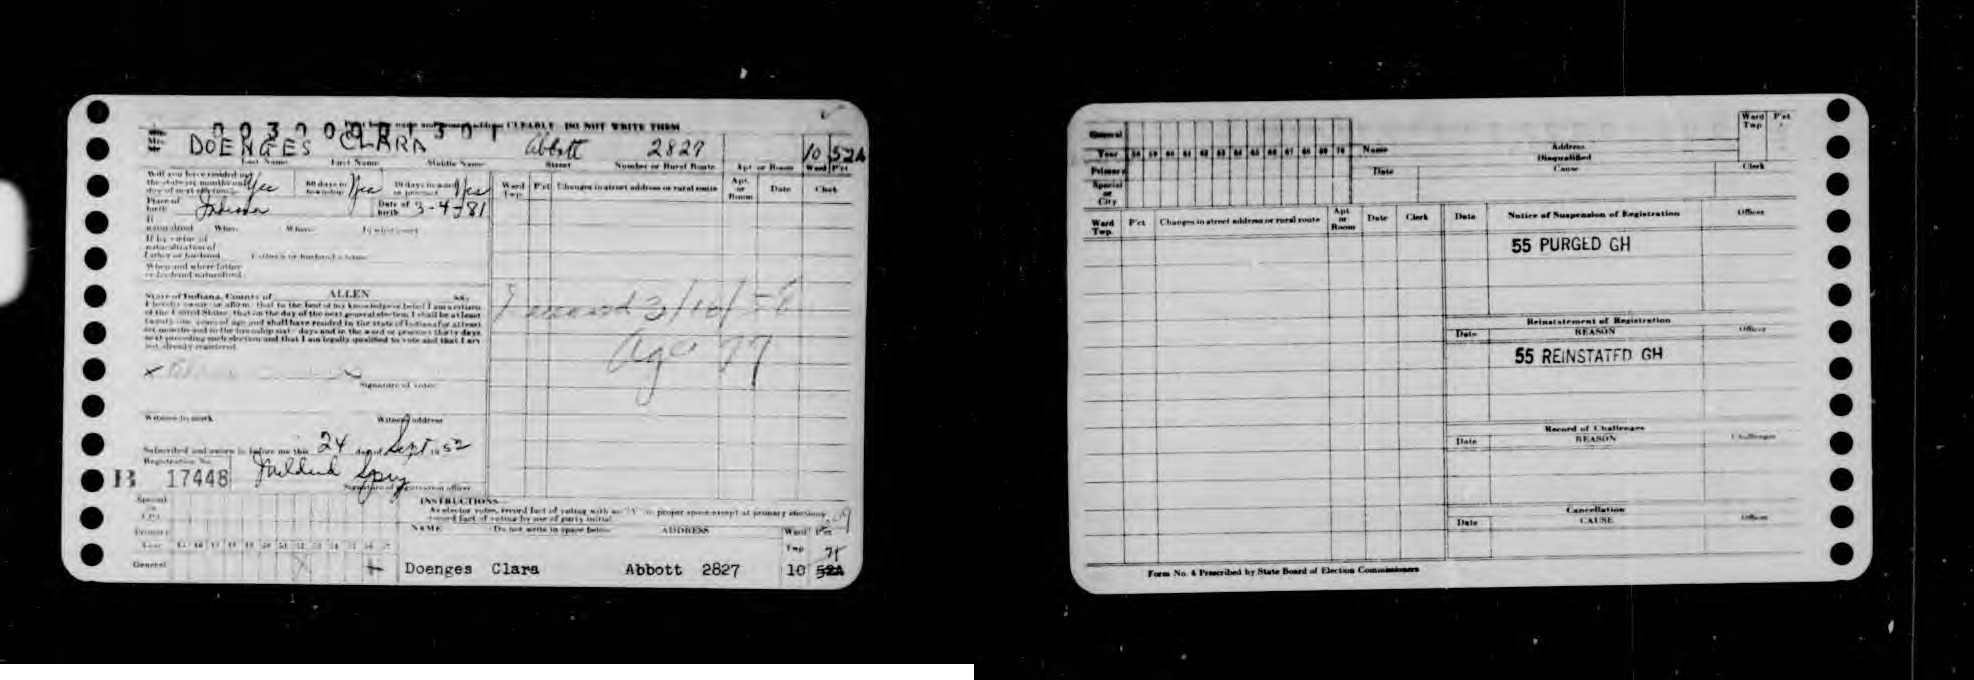 DOENGES CLARA Abbott 2827 10 52A
Last Name First Name Middle Name Street Number or Rural Route Apt or Room Ward Pct
Yes 60 days in township Yes 30 days in ward or precinct Yes
Place of birth Indiana Date of birth 3-4-81
If naturalized When Where In what court
If by virtue of naturalization of father or husband
When and where father or husband naturalized
Ward Twp. P'ct Changes in street address or rural route Apt. or Room Date Clerk
State of Indiana, County of ALLEN ss:
I hereby swear or affirm that to the best of my knowledge or belief I am a citizen
of the United States; that on the day of the next general election, I shall be at least
twenty-one years of age and shall have resided in the state of Indiana for at least
six months and in the township sixty days and in the ward or precinct thirty days
next preceding such election and that I am legally qualified to vote and that I am
not already registered.
3/16/
Age 77
Signature of voter
Witness to mark Witness address
Subscribed and sworn to before me this 24 day of Sept 1952
Registration No.
B 17448 Mildred Spry
Signature of registration officer
INSTRUCTIONS
As elector votes, record fact of voting with an "X" in proper space except at primary elections
record fact of voting by use of party initial.
NAME Do not write in space below ADDRESS Ward Twp P'ct
Primary
Year
General
Doenges Clara Abbott 2827 10 52A
General
Year 58 59 60 61 62 63 64 65 66 67 68 69 70
Primary
Special or City
Name Address Ward Twp P'ct
Disqualified
Date Cause Clerk
Ward Twp. P'ct Changes in street address or rural route Apt. or Room Date Clerk
Date Notice of Suspension of Registration Officer
55 PURGED GH
Reinstatement of Registration
Date REASON Officer
55 REINSTATED GH
Record of Challenges
Date REASON Challenger
Cancellation
Date CAUSE Officer
Form No. 4 Prescribed by State Board of Election Commissioners